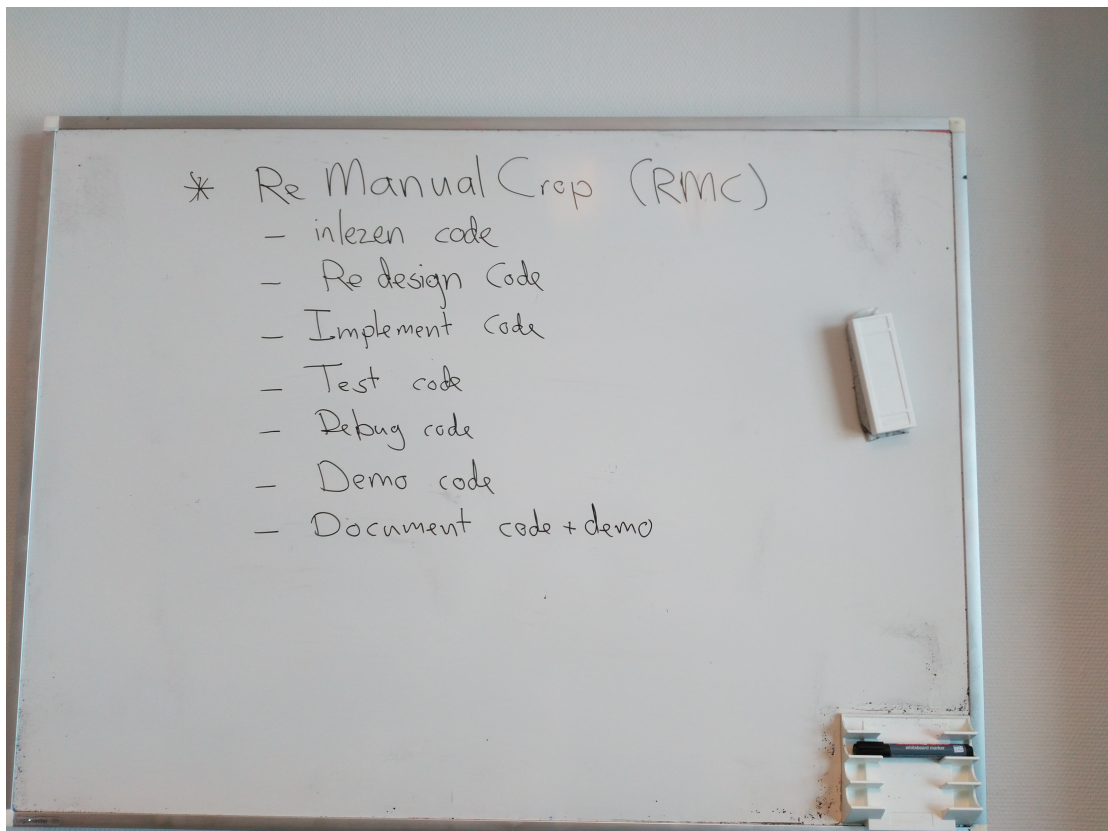 * Re Manual Crop (RMC)
– inlezen code
– Re design Code
– Implement Code
– Test code
– Debug code
– Demo code
– Document code + demo
whiteboard marker